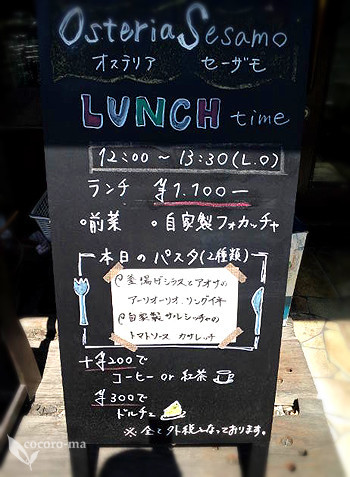 Osteria Sesamo
オステリア セーザモ
LUNCH time
12:00~13:30(L.O)
ランチ ¥1.100-
。前菜 。自家製フォカッチャ
本日のパスタ(2種類)
@釜揚げシラスとアオサの
アーリオーリオ リングイネ
@自家製サルシッチャの
トマトソース カサレッチ
+¥200で
コーヒー or 紅茶
¥300で
ドルチェ
※全て外税となっております。
cocoro-ma